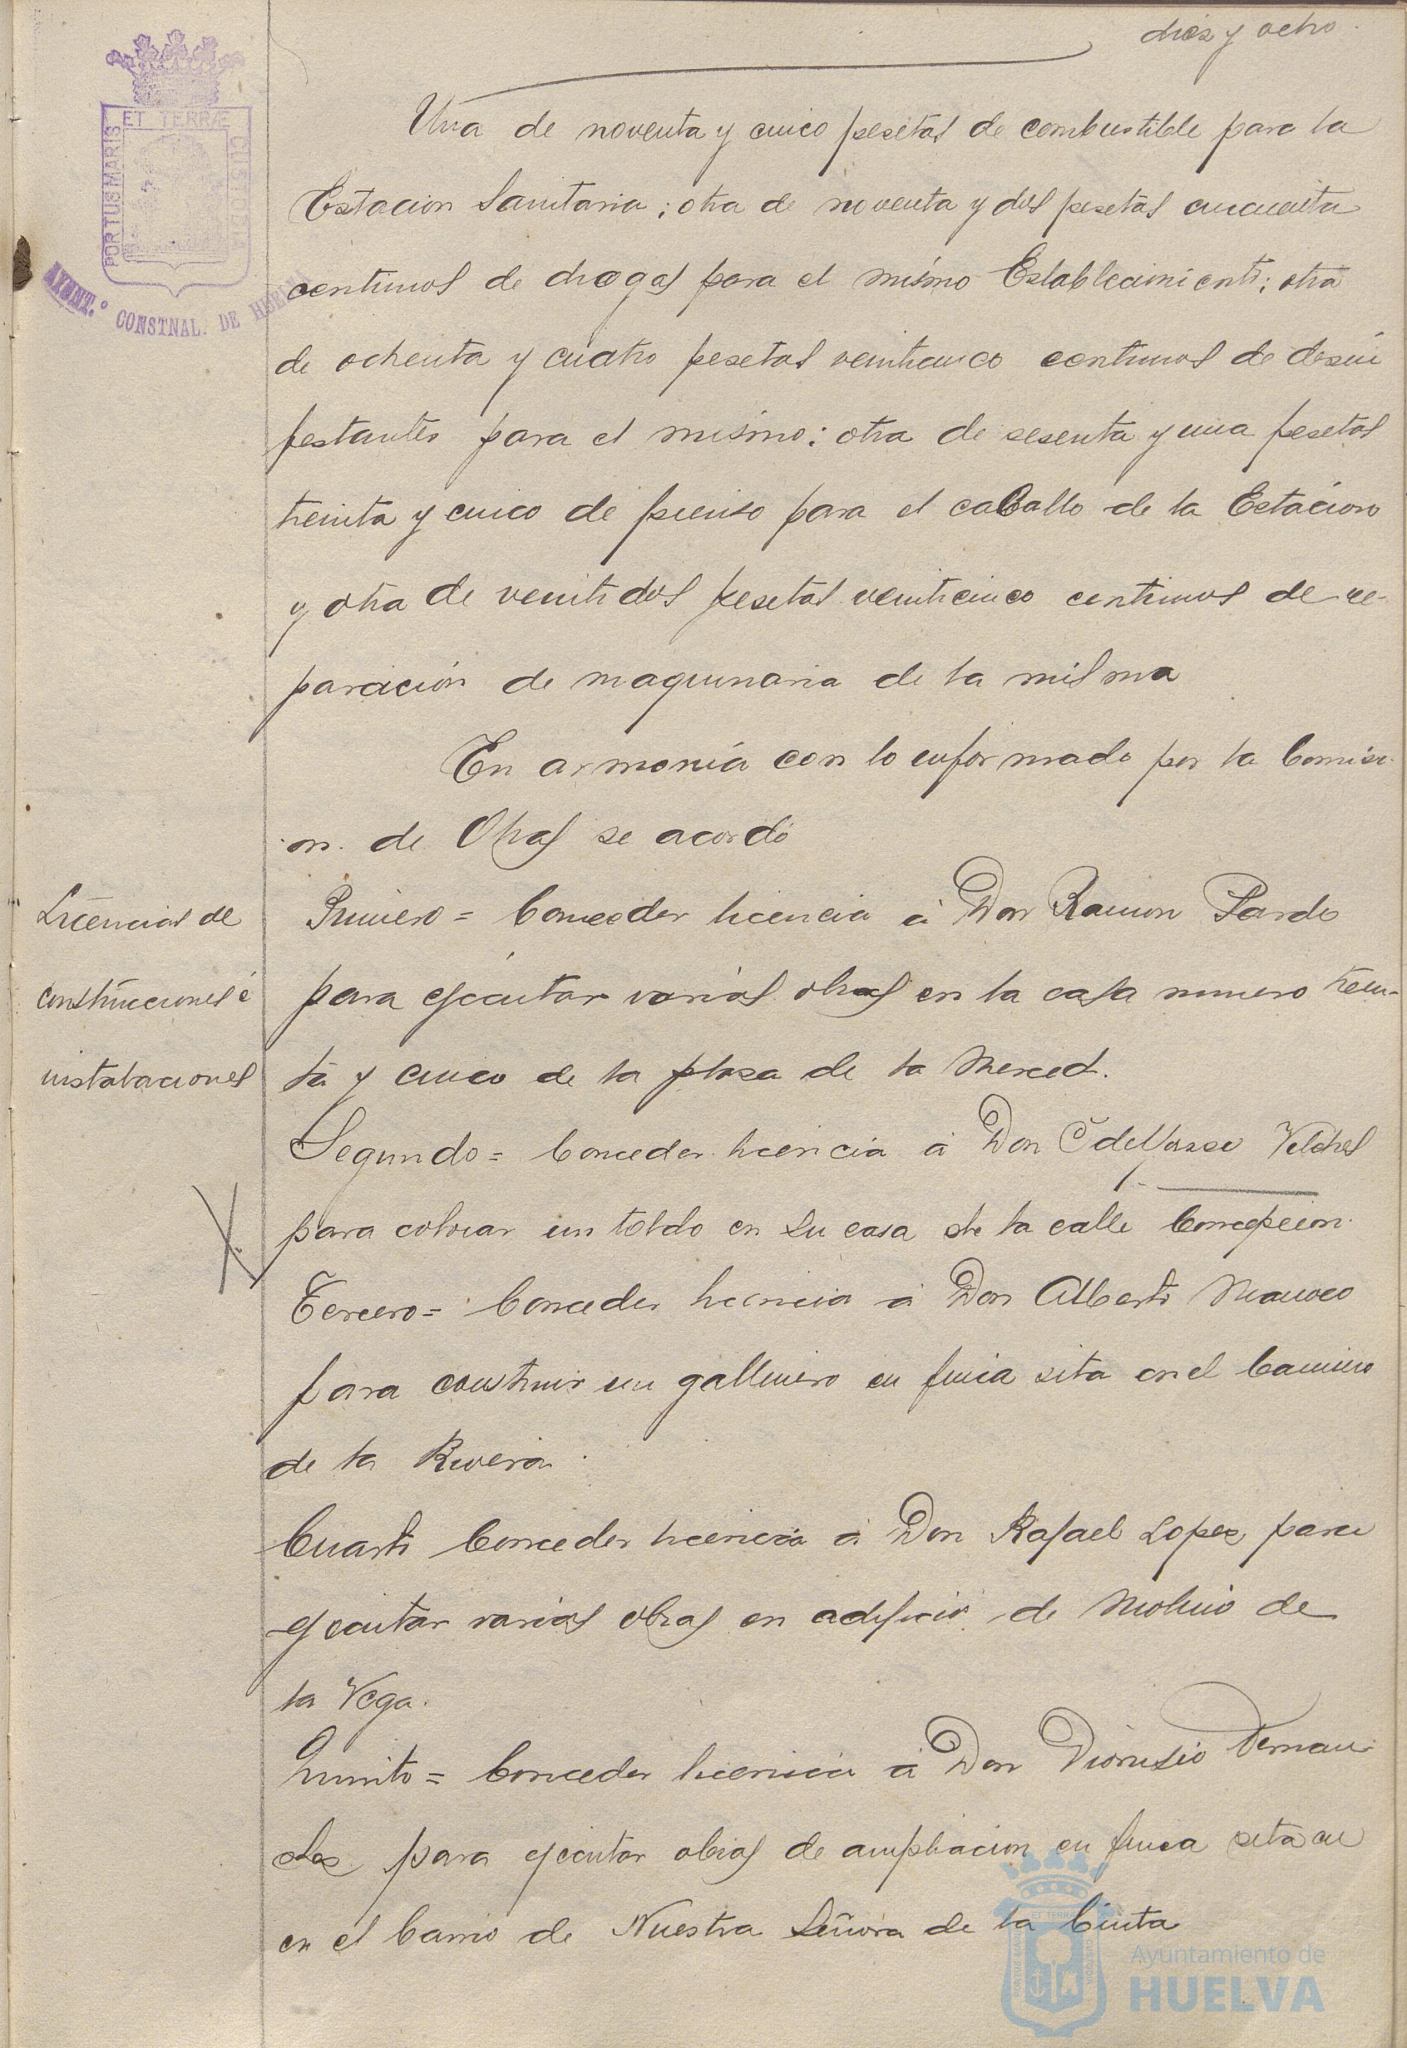 diez y ocho
Una de noventa y cinco pesetas de combustible para la
Estacion Sanitaria; otra de noventa y dos pesetas cincuenta
centimos de drogas para el mismo Establecimiento; otra
de ochenta y cuatro pesetas veinticinco centimos de desin
festantes para el mismo; otra de sesenta y una pesetas
treinta y cinco de pienso para el caballo de la Estacion
y otra de veintidos pesetas veinticinco centimos de re-
paración de maquinaria de la misma
En armonía con lo informado por la Comisi-
on de Obras se acordó
Licencias de
construcciones é
instalaciones
Primero = Conceder licencia á Don Ramon Pardo
para ejecutar varias obras en la casa numero trein-
ta y cinco de la plaza de la Merced.
Segundo = Conceder licencia á Don Ildefonso Vilches
para colocar un toldo en su casa de la calle Concepcion.
Tercero = Conceder licencia á Don Alberto
para construir un gallinero en finca sita en el Camino
de la Rivera.
Cuarto Conceder licencia á Don Rafael Lopez para
ejecutar varias obras en edificio de Molino de
la Vega.
Quinto = Conceder licencia á Don Dionisio Fernan-
dez para ejecutar obras de ampliacion en finca sita en
en el barrio de Nuestra Señora de la Cinta
PORTUS MARIS ET TERRÆ CUSTODIA
AYUNT.º CONSTNAL. DE HUELVA
Ayuntamiento de
HUELVA